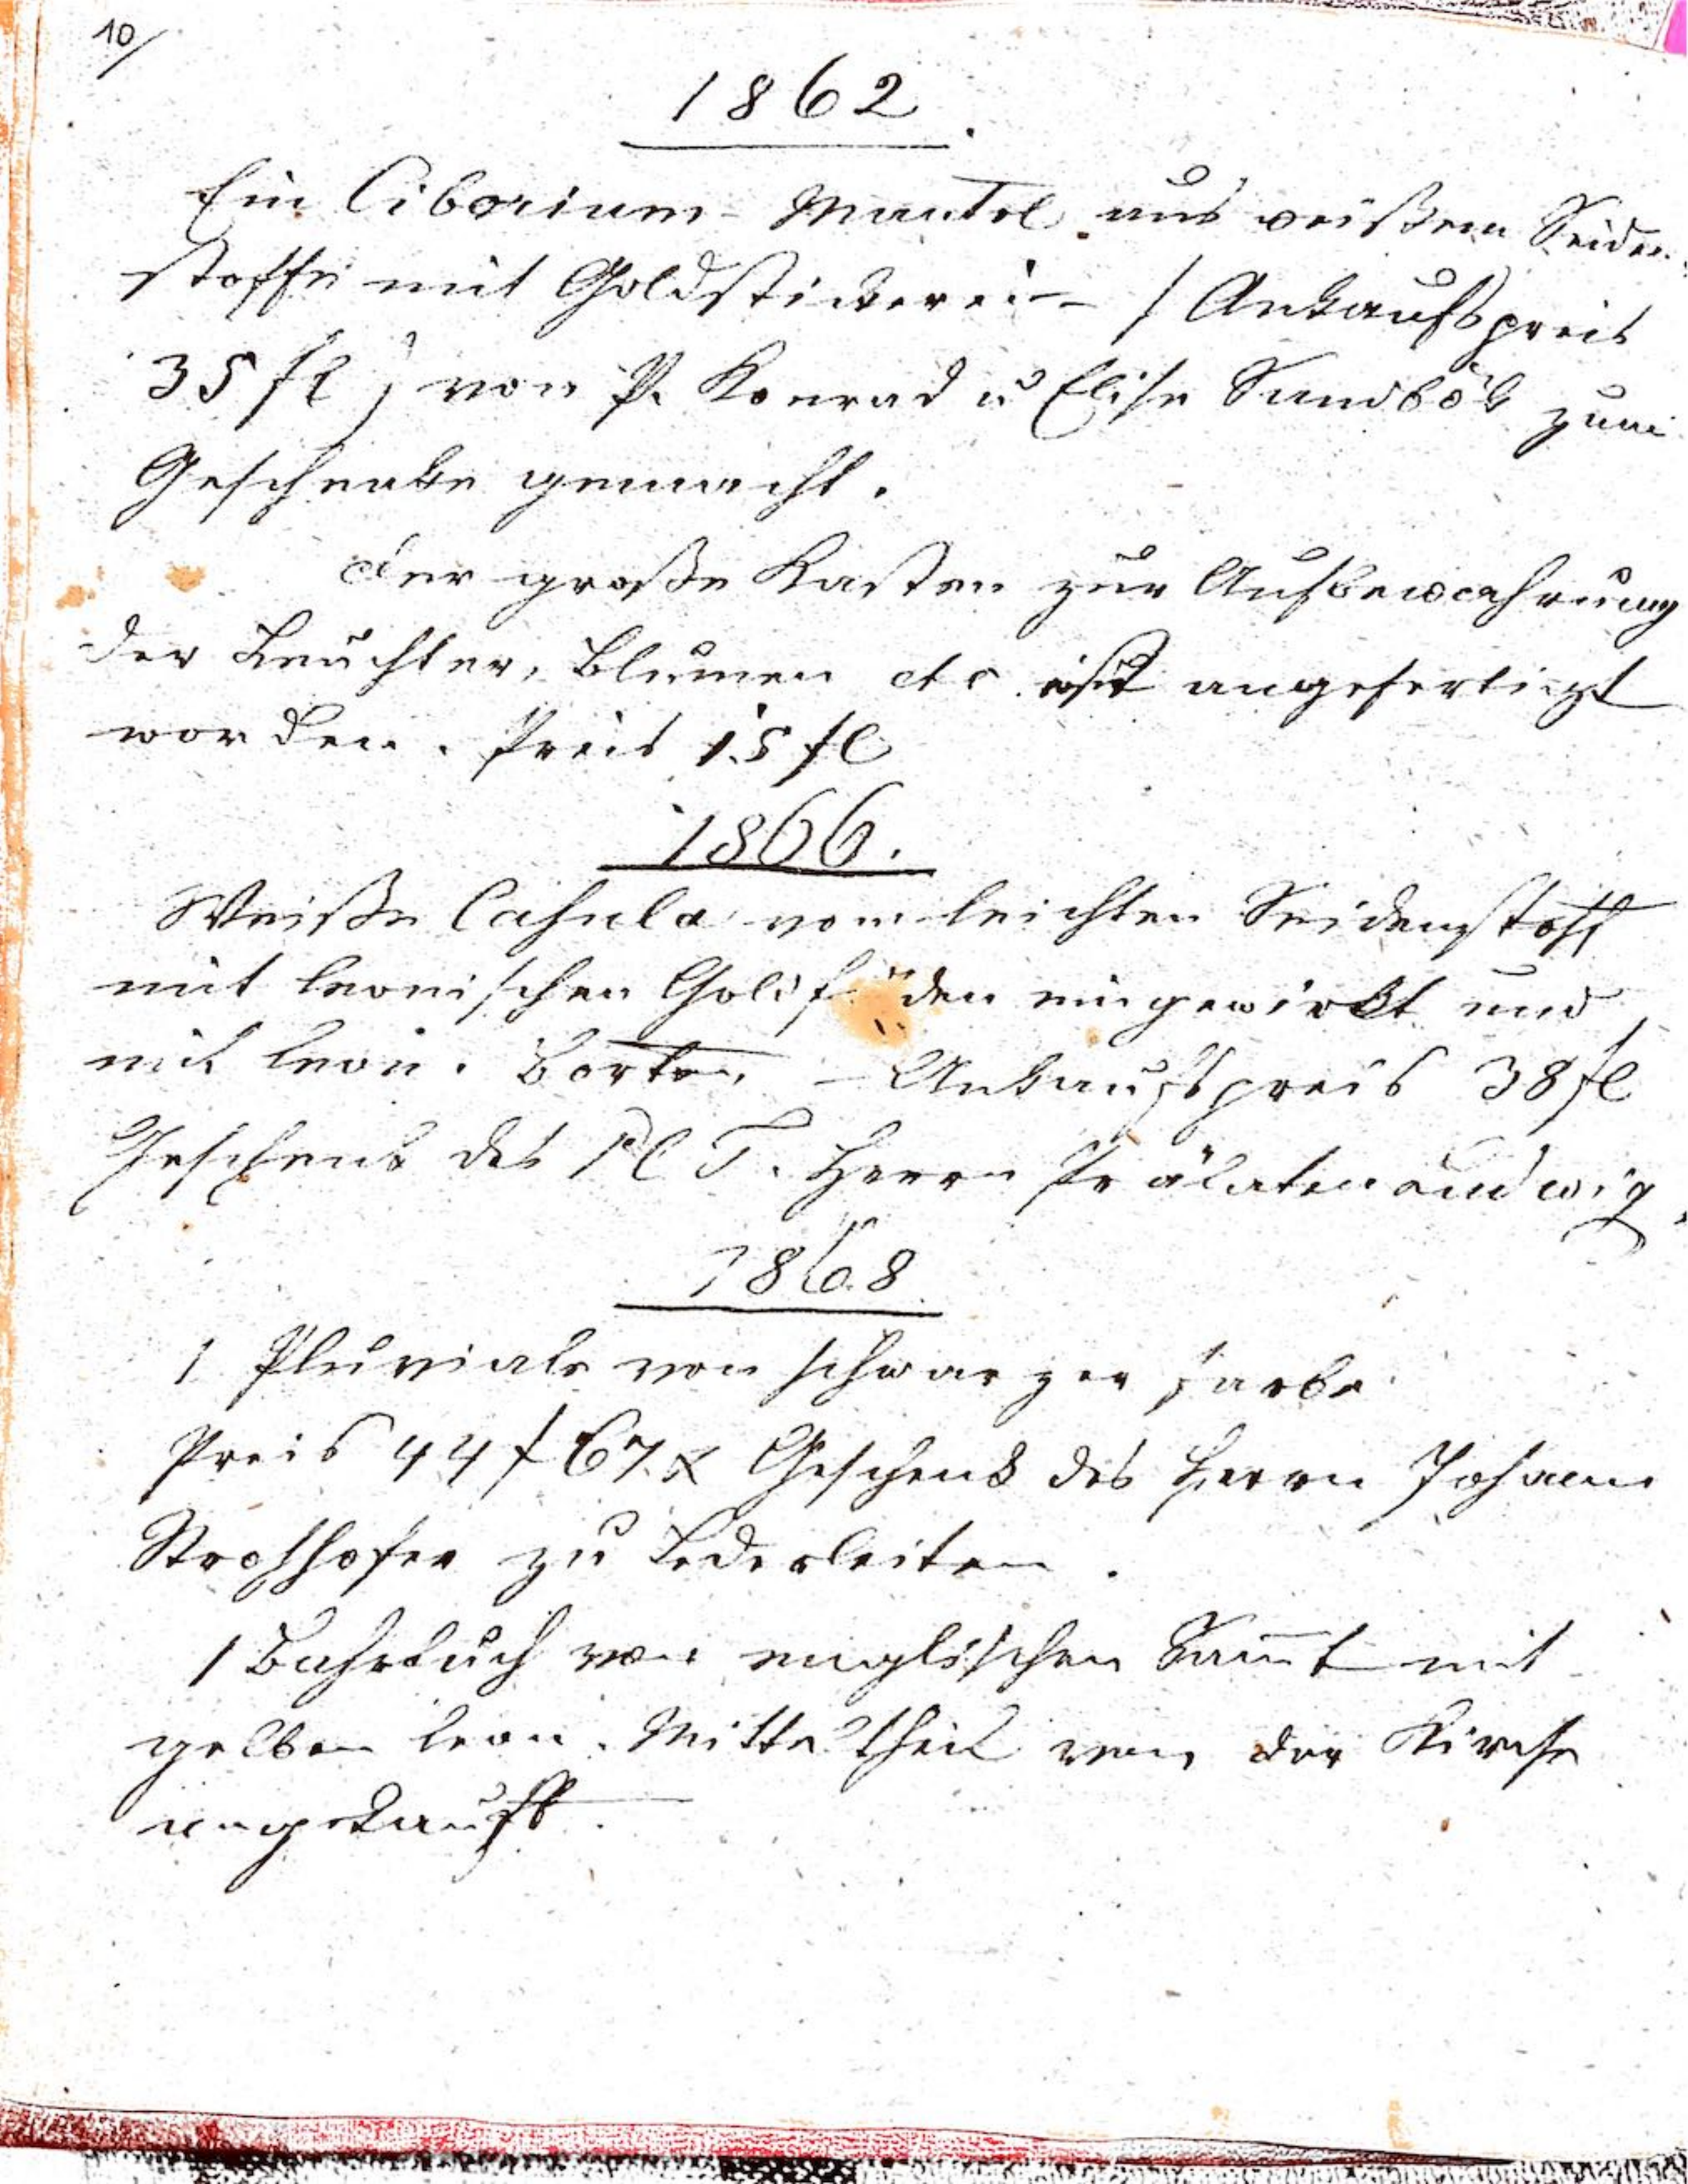 10/
1862.
Ein Ciborium-Mantel aus weißem Seiden-
stoffe mit Goldstickerei - (Ankaufspreis
35 fl) von P. Konrad u Elise Sandbök zum
Geschenke gemacht.
Der große Kasten zur Aufbewahrung
der Leuchter, Blumen etc. ist angefertigt
worden. Preis 15 fl
1866.
Weiße Casula vom leichten Seidenstoff
mit leonischen Goldfäden eingewirkt und
mit leon. Borten. - Ankaufspreis 38 fl
Geschenk des Pl. T. Herrn Prälaten Ludwig.
1868
1 Pluviale von schwarzer Farbe
Preis 44 f 67 x Geschenk des Herrn Johann
Strohhofer zu Lederleiten.
1 Bahrtuch von englischen Sammt mit
gelben leon. Mitteltheil von der Kirche
angekauft.